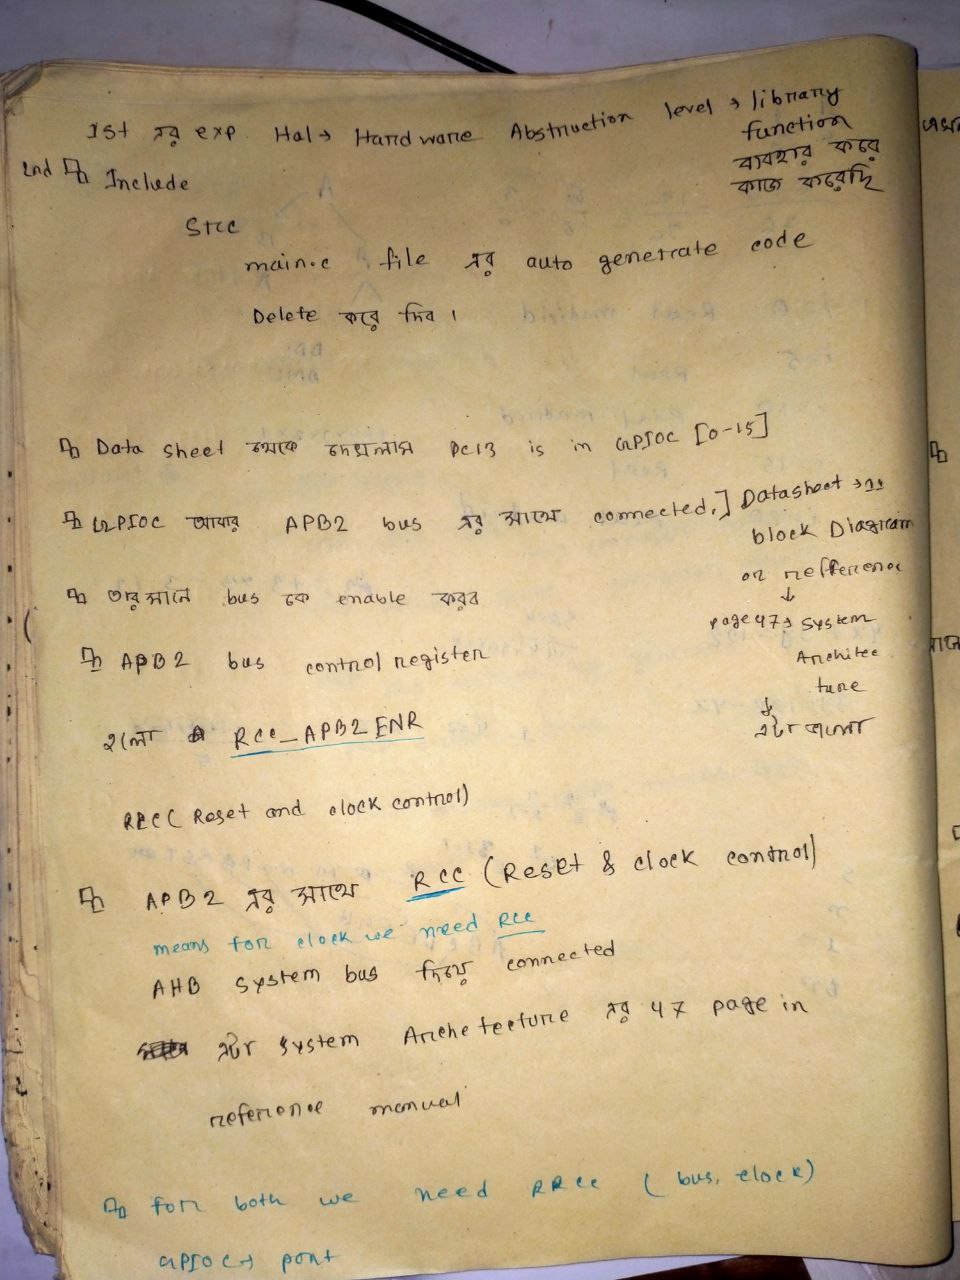 1st এর exp. Hal → Hardware Abstruction level → library
function
ব্যবহার করে
কাজ করেছি
2nd Include
Src
main.c file এর auto generate code
Delete করে দিব।
Data sheet থেকে দেখলাম PC13 is in GPIOC [0-15]
GPIOC আবার APB2 bus এর সাথে connected.] Datasheet → 11
block Diagram
or refference
↓
page 47 → System
Architec
ture
↓
এটা ভালো
তার মানে bus কে enable করব
APB2 bus control register
হলো RCC_APB2ENR
RCC( Reset and clock control)
APB2 এর সাথে RCC (Reset & clock control)
means for clock we need RCC
AHB System bus দিয়ে connected
এটা System Archetecture এর 47 page in
reference manual
for both we need RRCC ( bus, clock)
GPIOC → port